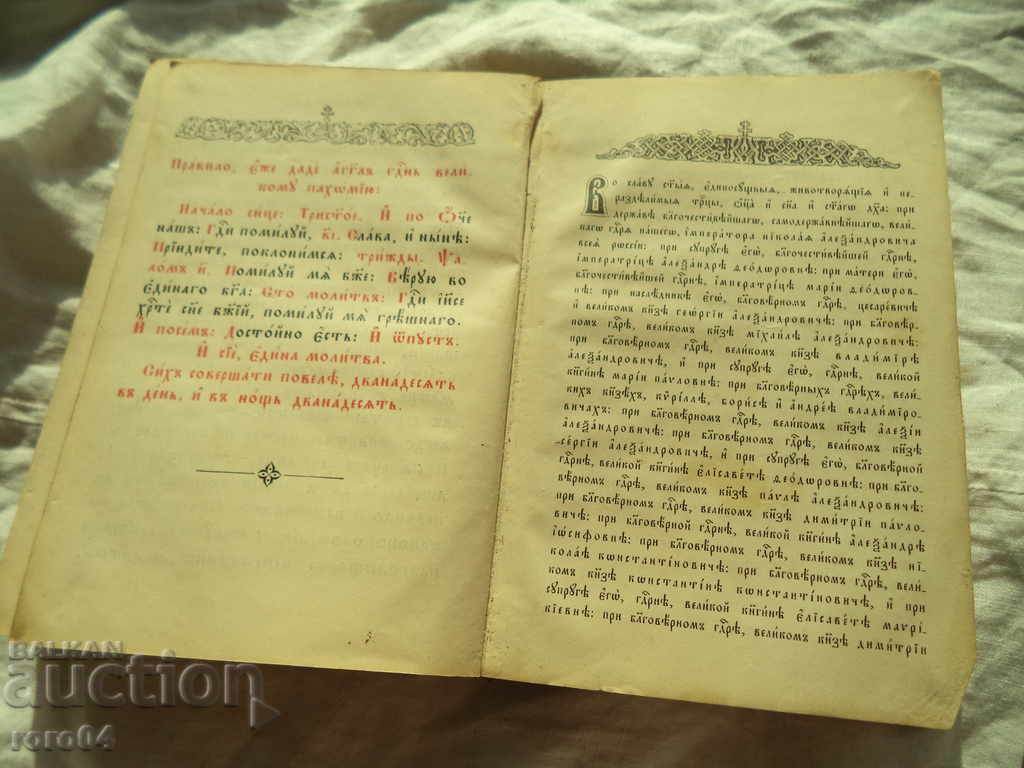 Правило, є҆́же дадѐ а҆́гг҃лъ гдⷭ҇нь вели́
кому пахѡ́мїю:
Начало си́це: Трист҃о́е. И҆ по Ѻ҆́ч҃е
на́шъ: Гдⷭ҇и поми́лꙋй, в҃і. Сла́ва, и҆ ны́нѣ:
Прїиди́те, поклони́мсѧ: три́жды. Ѱа
ло́мъ н҃. Поми́лꙋй мѧ̀ бж҃е: Вѣ́рꙋю во
є҆ди́наго бг҃а: Сто̀ моли́твъ: Гдⷭ҇и і҆и҃се
хрⷭ҇тѐ сн҃е бж҃їй, поми́лꙋй мѧ̀ грѣ́шнаго.
И҆ посе́мъ: Досто́йно є҆́сть: И҆ ѿпꙋ́стъ.
И҆ сїѐ, є҆ди́на моли́тва.
Си́хъ соверша́ти повелѣ̀, двана́десѧть
въ де́нь, и҆ въ но́щь двана́десѧть.
Во сла́вꙋ ст҃ы́ѧ, є҆диносꙋ́щныѧ, животворѧ́щїѧ и҆ не
раздѣ́лимыѧ трⷪ҇цы, ѻ҆ц҃а̀ и҆ сн҃а и҆ ст҃а́гѡ дх҃а: при
держа́вѣ бл҃гочести́вѣйшагѡ, самодержа́внѣйшагѡ, вели́
кагѡ гдⷭ҇рѧ на́шегѡ, і҆мпера́тора нїкола́ѧ а҆леѯа́ндровича
всеѧ̀ рѡссі́и: при сꙋпрꙋ́гѣ є҆гѡ̀, бл҃гочести́вѣйшей гдⷭ҇рнѣ,
і҆мператри́цѣ а҆леѯа́ндрѣ ѳео́дѡровнѣ: при ма́тери є҆гѡ̀,
бл҃гочести́вѣйшей гдⷭ҇рнѣ, і҆мператри́цѣ марі́и ѳео́дѡровнѣ:
при наслѣ́дникѣ є҆гѡ̀, бл҃говѣ́рномъ гдⷭ҇рѣ, цесаре́вичѣ
и҆ вели́комъ кн҃зѣ геѡ́ргїи а҆леѯа́ндровичѣ: при бл҃говѣ́р
номъ гдⷭ҇рѣ, вели́комъ кн҃зѣ мїхаи́лѣ а҆леѯа́ндровичѣ:
при бл҃говѣ́рномъ гдⷭ҇рѣ, вели́комъ кн҃зѣ влади́мїрѣ
а҆леѯа́ндровичѣ, и҆ при сꙋпрꙋ́гѣ є҆гѡ̀, гдⷭ҇рнѣ, вели́кой
кн҃ги́нѣ марі́и па́ѵловнѣ: при бл҃говѣ́рныхъ гдⷭ҇рѣхъ, вели́
кихъ кн҃зѣхъ, кѷрі́ллѣ, бори́сѣ и҆ а҆ндре́ѣ влади́мїро
вичахъ: при бл҃говѣ́рномъ гдⷭ҇рѣ, вели́комъ кн҃зѣ а҆леѯі́и
а҆леѯа́ндровичѣ: при бл҃говѣ́рномъ гдⷭ҇рѣ, вели́комъ кн҃зѣ
се́ргїи а҆леѯа́ндровичѣ, и҆ при сꙋпрꙋ́гѣ є҆гѡ̀, бл҃говѣ́рной
гдⷭ҇рнѣ, вели́кой кн҃ги́нѣ є҆лїсаве́тѣ ѳео́дѡровнѣ: при бл҃го
вѣ́рномъ гдⷭ҇рѣ, вели́комъ кн҃зѣ па́ѵлѣ а҆леѯа́ндровичѣ:
при бл҃говѣ́рномъ гдⷭ҇рѣ, вели́комъ кн҃зѣ дими́трїи па́ѵло
вичѣ: при бл҃говѣ́рной гдⷭ҇рнѣ, вели́кой кн҃ги́нѣ а҆леѯа́ндрѣ
і҆ѡ́сифовнѣ: при бл҃говѣ́рномъ гдⷭ҇рѣ, вели́комъ кн҃зѣ ні
кола́ѣ кѡнстанті́новичѣ: при бл҃говѣ́рномъ гдⷭ҇рѣ, вели́
комъ кн҃зѣ кѡнстанті́нѣ кѡнстанті́новичѣ, и҆ при
сꙋпрꙋ́гѣ є҆гѡ̀, гдⷭ҇рнѣ, вели́кой кн҃ги́нѣ є҆лїсаве́тѣ маѵрі
кі́евнѣ: при бл҃говѣ́рномъ гдⷭ҇рѣ, вели́комъ кн҃зѣ дими́трїи
BALKAN
auction
roro04